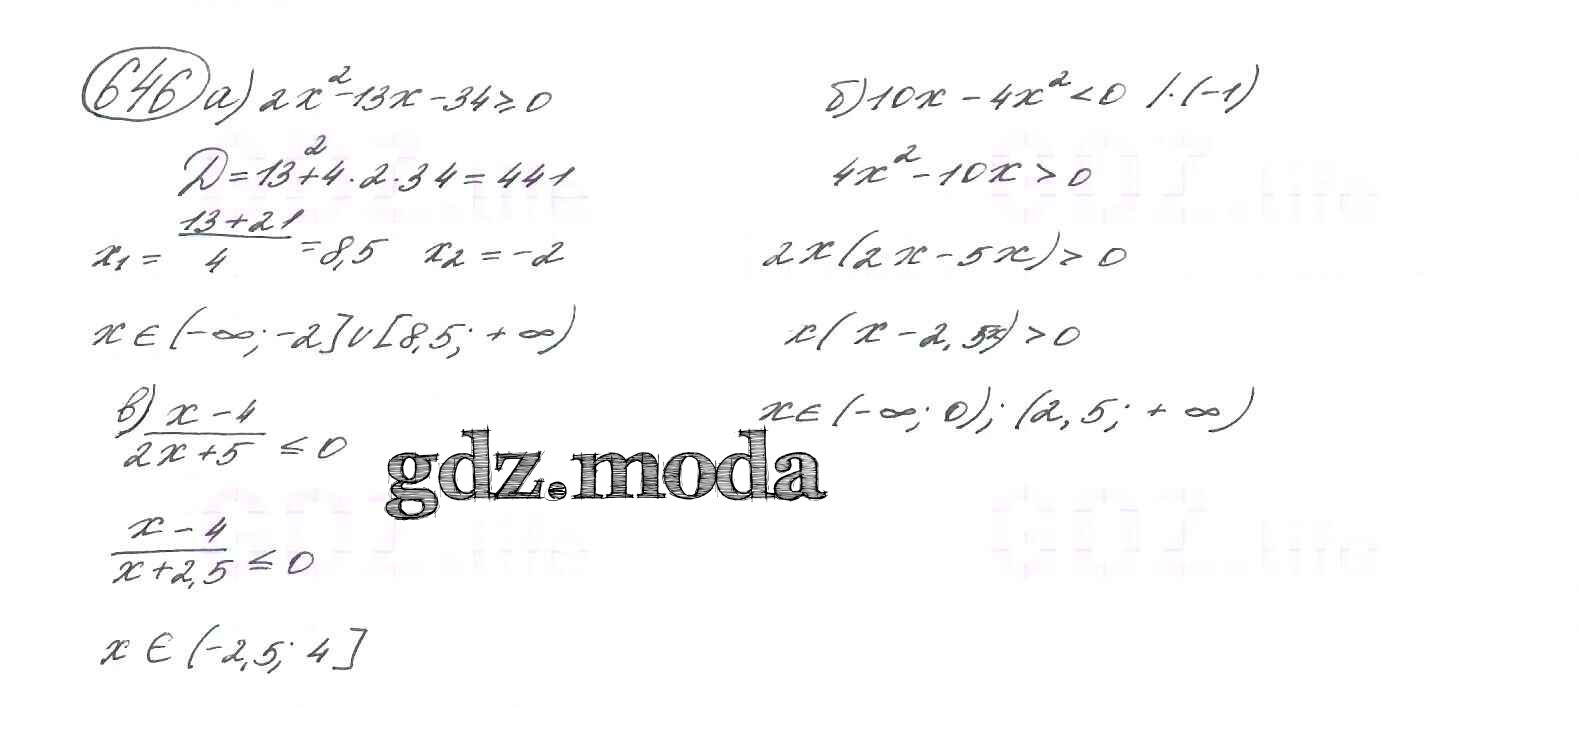 646 а) 2x²-13x-34≥0
D=13²+4·2·34=441
x₁ = (13+21)/4 = 8,5 x₂ = -2
x ∈ (-∞; -2] ∪ [8,5; +∞)
в) (x-4)/(2x+5) ≤ 0
(x-4)/(x+2,5) ≤ 0
x ∈ (-2,5; 4]
б) 10x - 4x² < 0 /·(-1)
4x² - 10x > 0
2x(2x-5x) > 0
x(x-2,5) > 0
x ∈ (-∞; 0); (2,5; +∞)
gdz.moda
GDZ.life
GDZ.life
GDZ.life
GDZ.life